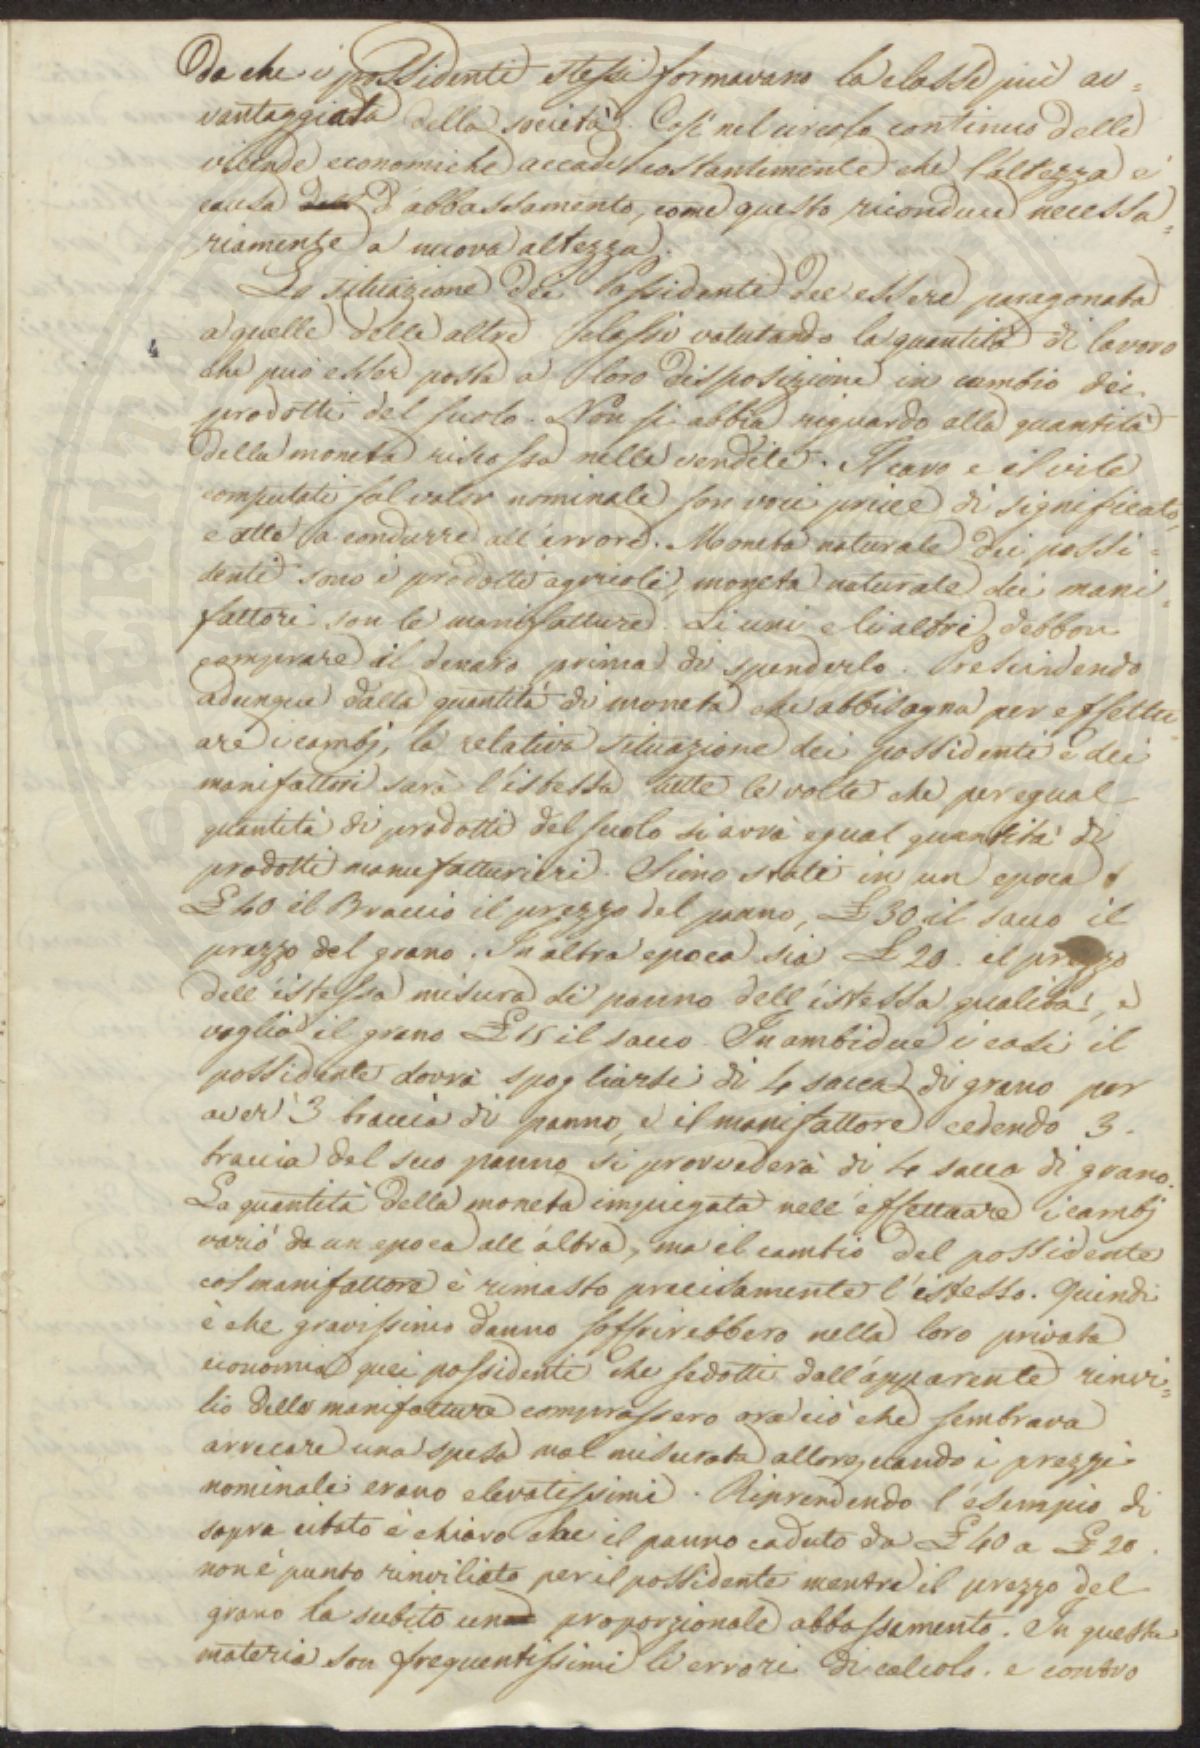 da che i possidenti stessi formavano la classe più av=
vantaggiata della società. Così nel circolo continuo delle
vicende economiche accade costantemente che l'altezza è
causa d'abbassamento, come questo riconduce necessa=
riamente a nuova altezza.
La situazione dei Possidenti dee essere paragonata
a quelle delle altre Classi valutando la quantità di lavoro
che può esser posta a loro disposizione in cambio dei
prodotti del suolo. Non si abbia riguardo alla quantità
della moneta riscossa nelle vendite. Il caro e il vile
computati sul valor nominale son voci prive di significato,
e atte a condurre all'errore. Moneta naturale dei possi=
denti sono i prodotti agricoli, moneta naturale dei mani=
fattori son le manifatture. Li uni e li altri debbon
comprare il denaro prima di spenderlo. Prescindendo
adunque dalla quantità di moneta che abbisogna per effettu=
are i cambj, la relativa situazione dei possidenti e dei
manifattori sarà l'istessa tutte le volte che per egual
quantità di prodotti del suolo si avrà egual quantità di
prodotti manufatturieri. Siono stati in un epoca
£ 40 il Braccio il prezzo del panno, £ 30 il sacco il
prezzo del grano. In altra epoca sia £ 20. il prezzo
dell'istessa misura di panno dell'istessa qualità, e
vaglia il grano £ 15 il sacco. In ambidue i casi il
possidente dovrà spogliarsi di 4 sacca di grano per
aver 3 braccia di panno, e il manifattore cedendo 3.
braccia del suo panno si provvederà di 4 sacca di grano.
La quantità della moneta impiegata nell'effettuare i cambj
variò da un epoca all'altra, ma il cambio del possidente
col manifattore è rimasto precisamente l'istesso. Quindi
è che gravissimo danno soffrirebbero nella loro privata
economia quei possidenti che sedotti dall'apparente rinvi=
lio delle manifatture comprassero ora ciò che sembrava
arrecare una spesa mal misurata allorquando i prezzi
nominali erano elevatissimi. Riprendendo l'esempio di
sopra citato è chiaro che il panno caduto da £ 40 a £ 20.
non è punto rinviliato per il possidente mentre il prezzo del
grano ha subito un proporzionale abbassamento. In questa
materia son frequentissimi li errori di calcolo. e contro